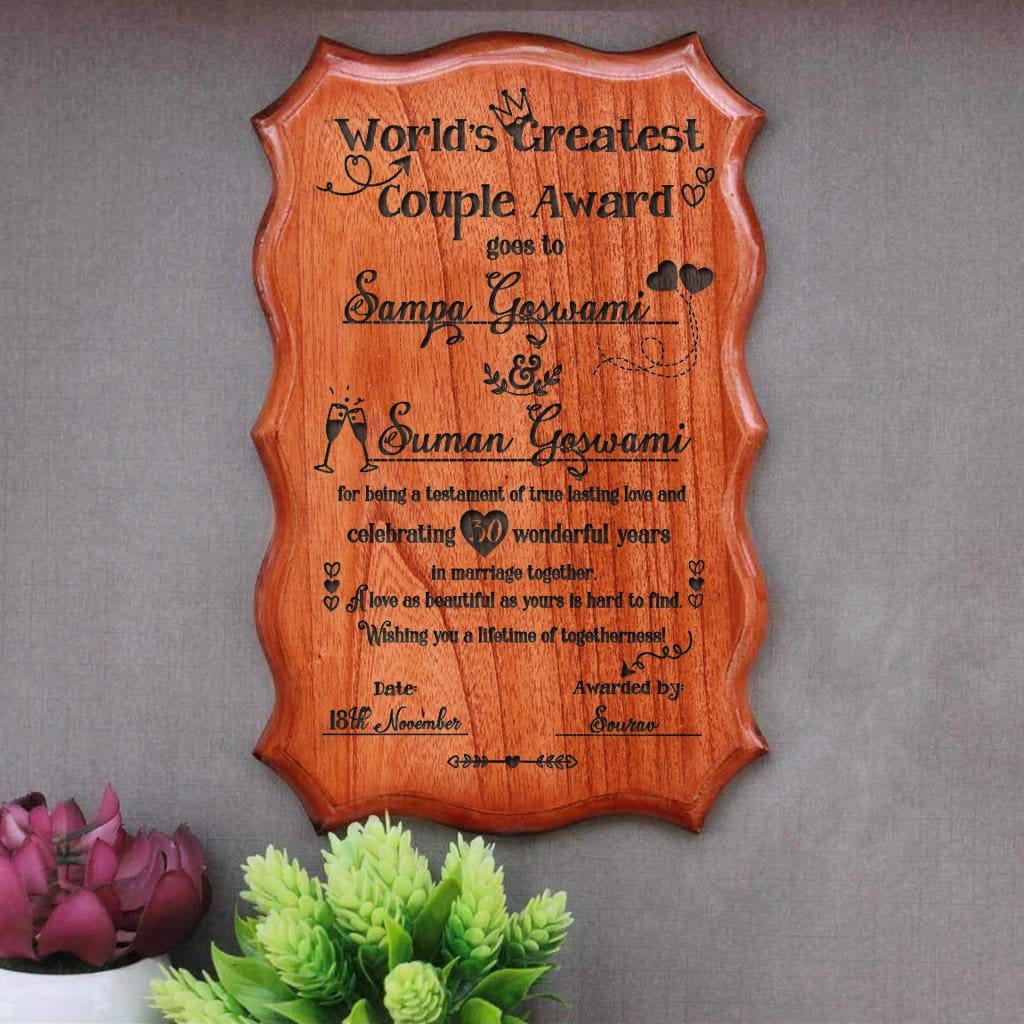 World's Greatest
Couple Award
goes to
Sampa Goswami
&
Suman Goswami
for being a testament of true lasting love and
celebrating 30 wonderful years
in marriage together.
A love as beautiful as yours is hard to find.
Wishing you a lifetime of togetherness!
Date: Awarded by:
18th November Sourav